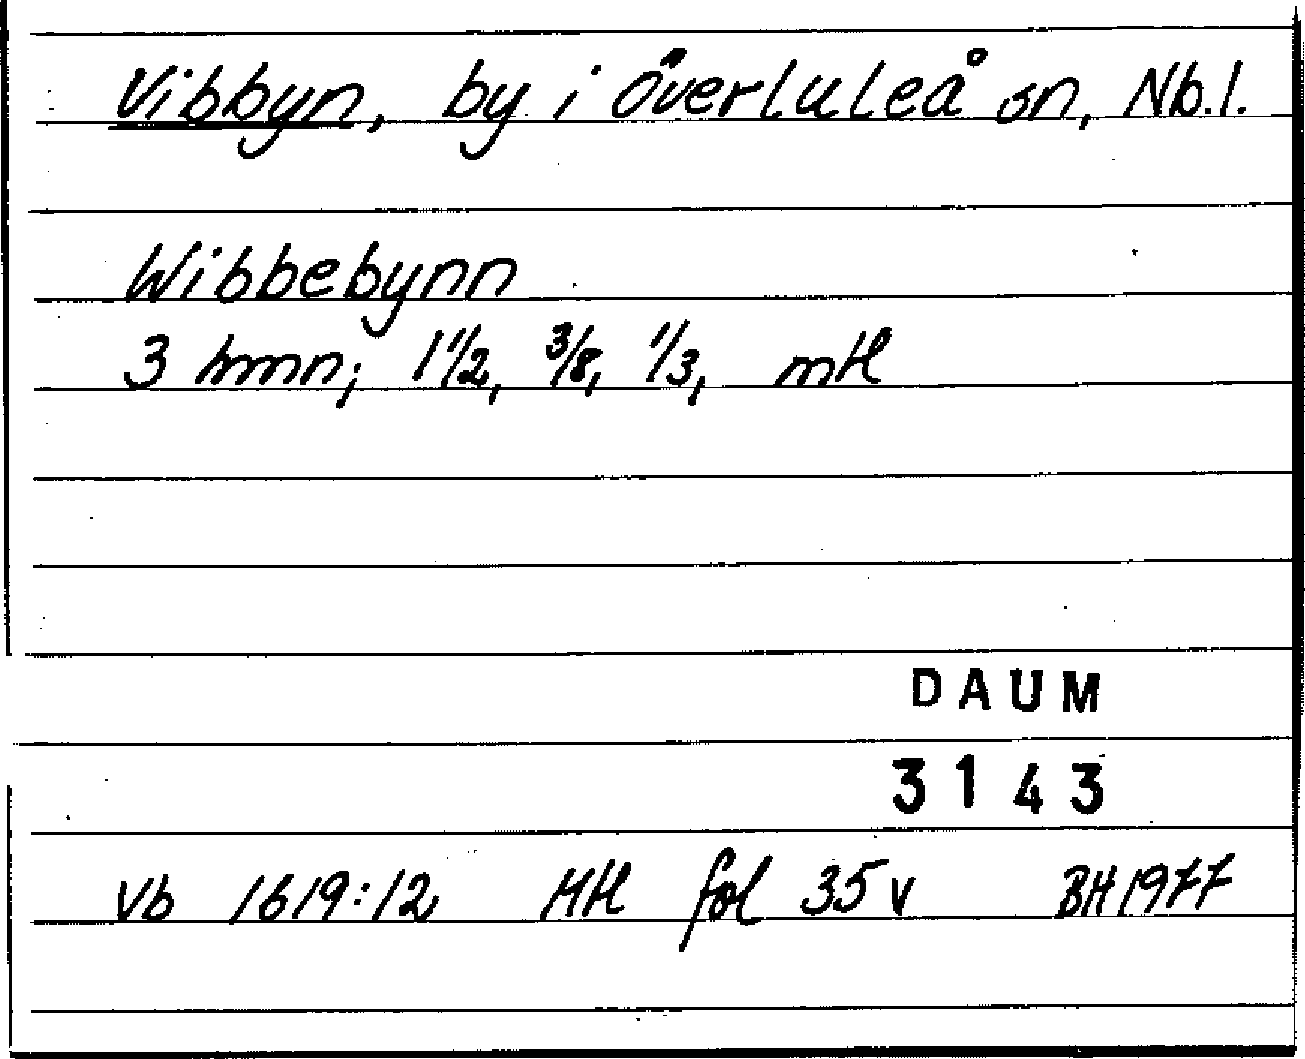 Vibbyn, by i Överluleå sn, Nb.l.
Wibbebynn
3 hmn; 1 1/2, 3/8, 1/3, mtl
DAUM
3143
Vb 1619:12 Mtl fol 35 v BH 1977